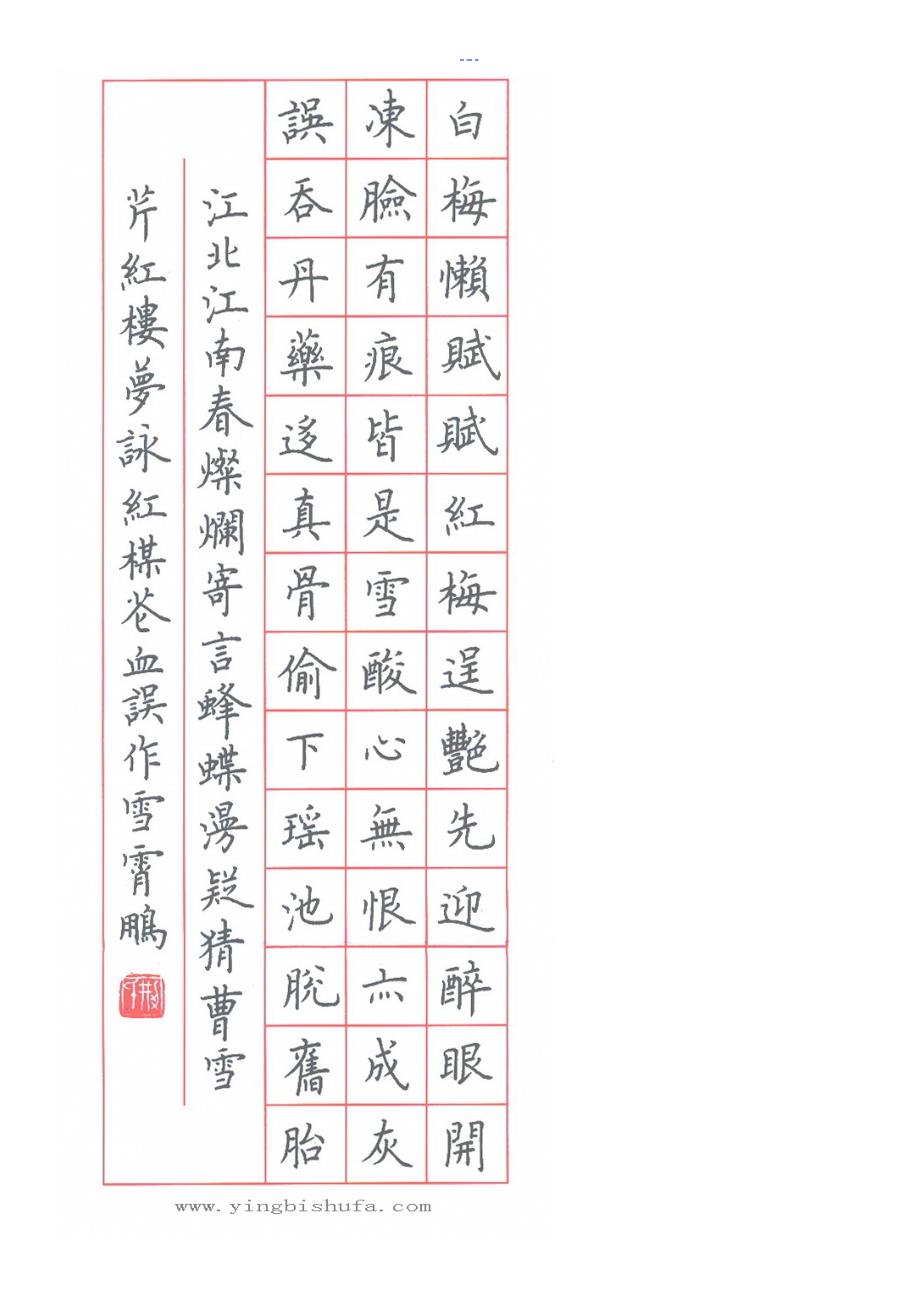 ---
白梅懶賦賦紅梅逞艷先迎醉眼開
凍臉有痕皆是雪酸心無恨亦成灰
誤吞丹藥迻真骨偷下瑶池脫舊胎
江北江南春燦爛寄言蜂蝶漫疑猜曹雪
芹紅樓夢詠紅楳花血誤作雪霄鵬
www.yingbishufa.com